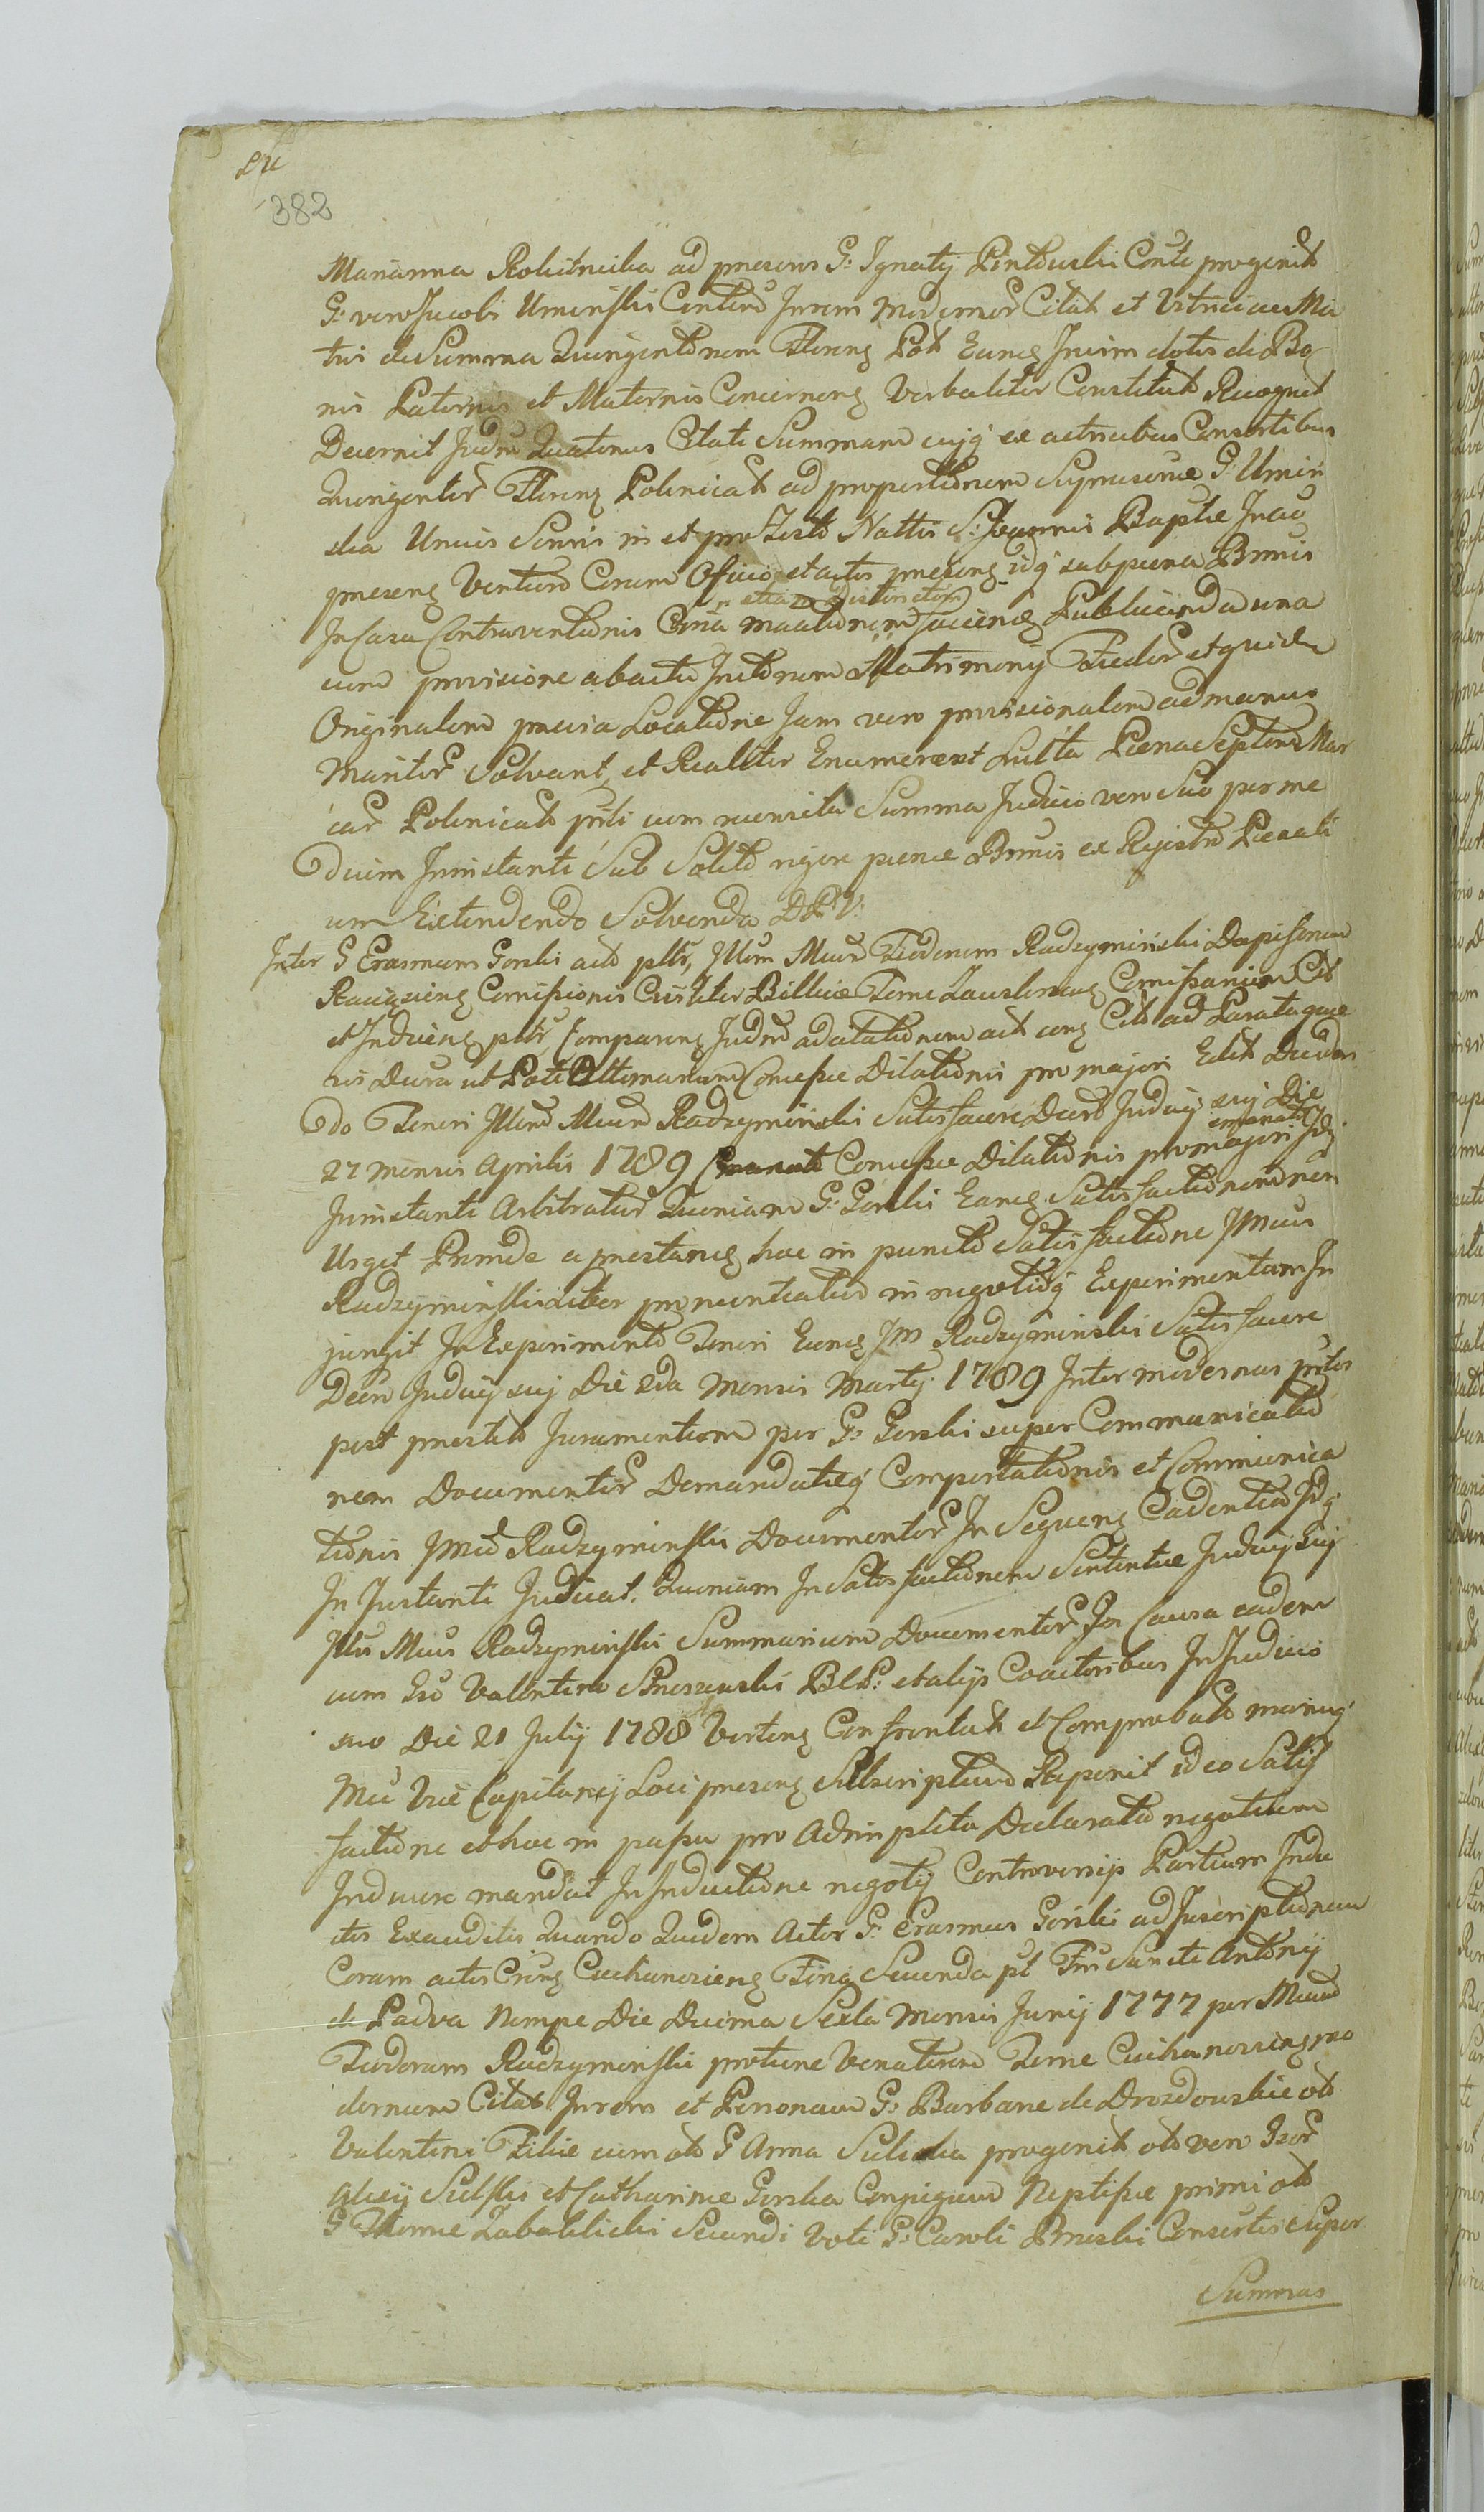 382
Marianna Rokitnicka ad præsens G: Ignatij Pintowski Conte progenit
G: vero Jacobi Umiński Contem Inrem modernor Citat et Vitrici ac Ma
tris de Summa Quingentorum Floreng Pol Eancg Invim dotis de Bo
nis Paternis et Maternis Concerneng Verbaliter Constitut Recognit
Decernit Judm Quatenus Citati Summam cujq ex actricibus Consortibus
Quingentor Floreng Polonicat ad proportionem Supruscriæ G: Umiń
ska Unius Sororis in et pro Festo Nattis S: Joannis Baptæ Inao
preseng Venturo Coram Officio et actis preseng idq sub pæna Bnnis
In Casu Contraventionis Cona maationem facieng Publicanda una
etiam distinctam
cum provisione ab actu Initorum Matrimonij Fædor et quidem
Originalem prævia Locatione Jam vero provisionalem ad manus
Maritor Solvant et Realiter Enumerent Luita Pæna Septem Mar
car Polonicat pti cum recensita Summa Judicio vero Suo per me
dium Inninstanti Sub Solito rigore pænæ Bnnis ex Regestro Pænali
um Extendendo Solvenda D.P.V.
Inter G Erasmum Gorski act pltr, Illum Mcum Teodorum Radzymiński Dapiferum
Raciązieng Comissionis Cuslitor Bellicæ Terræ Zawskrineng Comissarium Cit
et Induceng pltr Compareng Judm ad citationem act cong Cit ad Parata quæ
ris Decia ut Poti Ultimarum Concessæ Dilationis pro majori Edit Dcidin
do Teneri Illum Mcum Radzyminski Satisfacere Decto Judicij suj Die
27 mensis Aprilis 1789 Emanato Concessæ Dilationis pro majori Idq
emanato
Inninstanti Arbitratur Quoniam G: Gorski Eancg Satisfactionem non
Urget Proinde a prestancg hac in puncto Satisfactione JMcus
Radzyminski liber pronuntiatur in negotioq Experimentum In
jungit In Experimento Teneri Eunce JM Radzyminski Satisfacere
Decto Judicij suj Die 2da Mensis Martij 1789 Inter modernas ptes
post prestit Juramentum per G: Gorski super Communicatio
nem Documentor Demandatæq Comportationis et Communica
tionis JMci Radzyminski Documentor In Sequeng Cadentia Idq
In Instanti Judicat. Quoniam In Satisfactionem Sententiæ Judicij Suj
Illr Mcus Radzyminski Summarium Documentor In Causa eadem
cum Gso Valentino Smoszewski B.C.P: et alijs Coactoribus In Judicio
suo Die 21 Julij 1788 Verteng Confrontat et Comprobat manuq
Mci Vice Capitanej Loci preseng Subscriptum Reponit ideo Satis
factione et hac in passu pro Adimpleta Declarata negotium
Inducere mandat In Inductione negotij Controversijs Partium Indu
ctis Exauditis Quando Quidem Actor G: Erasmus Gorski ad Inscriptionem
Coram actis Cring Ciechanovieng Feria Secunda pt Fm Sancti Antonij
de Padva Nempe Die Decima Sexta Mensis Junij 1777 per Mcum
Teodorum Radzyminski protunc Venatorem Terræ Ciechanovieng mo
dernum Citat Inrem et Personam G: Barbaræ de Drozdowskie ob
Valentini Filiæ cum ob G Anna Sulska progenit ob vero Gsor
Alexij Sulski et Catharinæ Gorska Conjugum Neptissæ primi ob
G Thomæ Zabokliski Secundi Voti G: Caroli Breski Consortis super
Summas